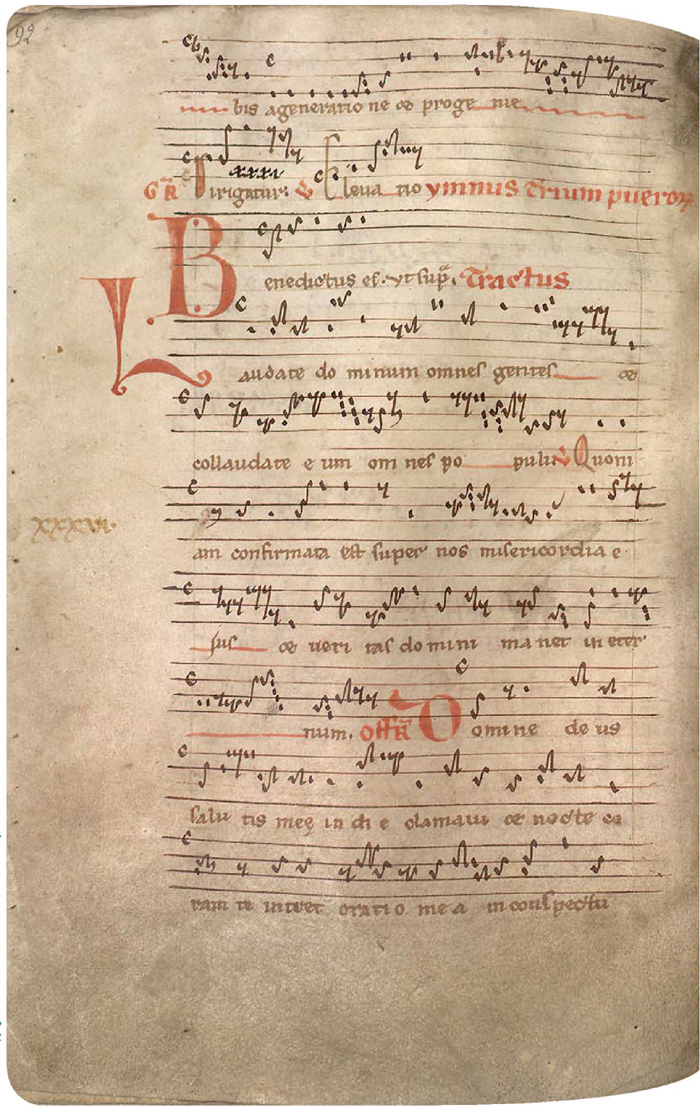 92
bis ageneratio ne & proge nie
Gr̄ Dirigatur. xxxvi V Eleva tio ymnus trium pueroꝝ
Benedictus es. ut sup̄. Tractus
Laudate do minum omnes gentes &
collaudate e um om nes po puli. V Quoni
xxxvi.
am confirmata est super nos misericordia e
ius & veri tas do mini ma net in eter
num. Offr̄ Domine de us
salu tis meę in di e clamavi & nocte co
ram te intret oratio me a in conspectu